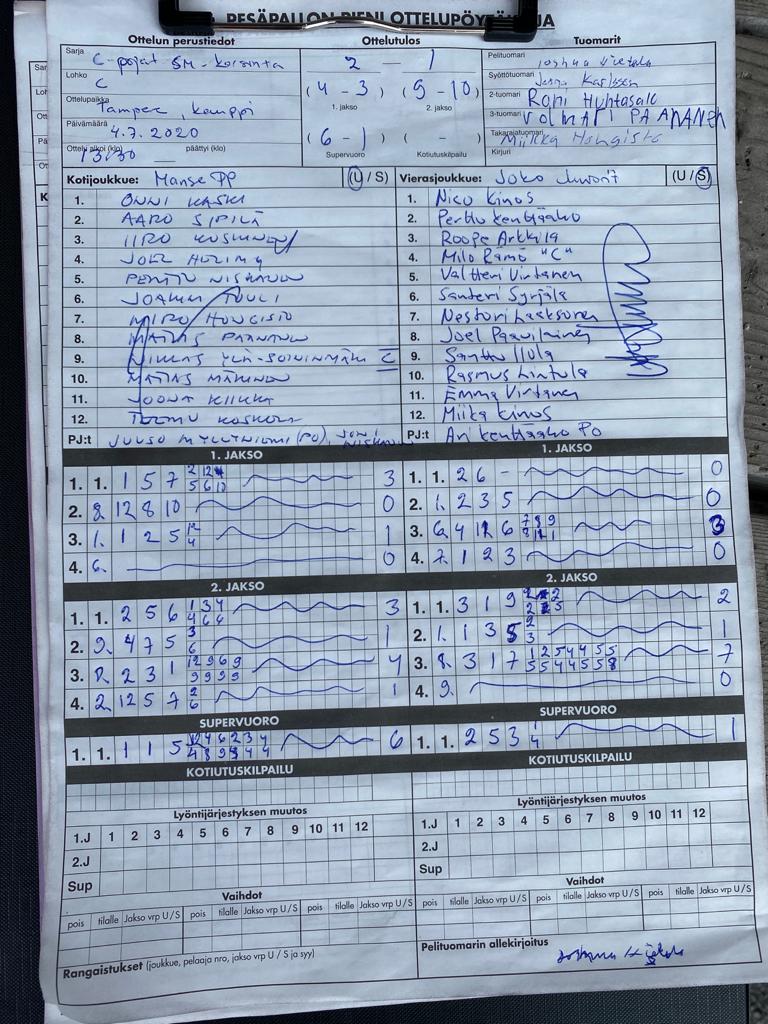 PESÄPALLON PIENI OTTELUPÖYTÄKIRJA
Ottelun perustiedot
Sarja C-pojat SM-karsinta
Lohko C
Ottelupaikka Tampere, kauppi
Päivämäärä 4.7.2020
Ottelu alkoi (klo) 13:30 päättyi (klo)
Ottelutulos
2 - 1
(4 - 3) (9 - 10)
1. jakso 2. jakso
(6 - 1) ( - )
Supervuoro Kotiutuskilpailu
Tuomarit
Pelituomari
Syöttötuomari
2-tuomari Roni Huhtasalo
3-tuomari VOLMARI PAANANEN
Takarajatuomari Miikka Hongisto
Kirjuri
Kotijoukkue: Manse PP (U / S)
1. ONNI KASKI
2. AARO SIPILÄ
3. IIRO KOSKINEN
4. JOEL
5. PENTTI NISKANEN
6. TUULI
7. MIRO HONGISTO
8. PAANANEN
9. NIKLAS YLÄ-SOININMÄKI C
10. MATIAS MÄKINEN
11. JOONA KIIKKA
12. TEEMU KOSKELA
PJ:t JUUSO MYLLYNIEMI (PO), JONI NISKANEN
Vierasjoukkue: Joko Juniorit (U / S)
1. Nico Kinos
2. Perttu Kenttäaho
3. Roope Arkkila
4. Milo Rämö "C"
5. Valtteri Virtanen
6. Santeri Syrjälä
7. Nestori Laaksonen
8. Joel Paavilainen
9. Santtu
10. Rasmus Lintula
11. Emma Virtanen
12. Miika Kinos
PJ:t Ari Kenttäaho PO
1. JAKSO
1. 1. 1 5 7 2 12 4 5 6 10 3
2. 8. 12 8 10 0
3. 1. 1 2 5 12 4 1
4. 6. 0
1. JAKSO
1. 1. 2 6 - 0
2. 1. 2 3 5 0
3. 6. 4 12 6 7 8 9 8 12 1 3
4. 7. 1 2 3 0
2. JAKSO
1. 1. 2 5 6 1 3 4 4 6 6 3
2. 9. 4 7 5 3 6 1
3. 8. 2 3 1 12 9 6 9 9 9 9 9 4
4. 2. 12 5 7 2 6 1
2. JAKSO
1. 1. 3 1 9 2 2 2 2 5 2
2. 1. 1 3 5 2 3 1
3. 8. 3 1 7 1 2 5 4 4 5 5 5 5 4 4 5 5 8 7
4. 9. 0
SUPERVUORO
1. 1. 1 1 5 12 4 6 2 3 4 4 8 9 3 4 4 6
SUPERVUORO
1. 1. 2 5 3 1 4 1
KOTIUTUSKILPAILU
KOTIUTUSKILPAILU
Lyöntijärjestyksen muutos
1.J 1 2 3 4 5 6 7 8 9 10 11 12
2.J
Sup
Lyöntijärjestyksen muutos
1.J 1 2 3 4 5 6 7 8 9 10 11 12
2.J
Sup
Vaihdot
pois tilalle Jakso vrp U/S pois tilalle Jakso vrp U/S pois tilalle Jakso vrp U/S
Vaihdot
pois tilalle Jakso vrp U/S pois tilalle Jakso vrp U/S pois tilalle Jakso vrp U/S
Rangaistukset (joukkue, pelaaja nro, jakso vrp U / S ja syy)
Pelituomarin allekirjoitus